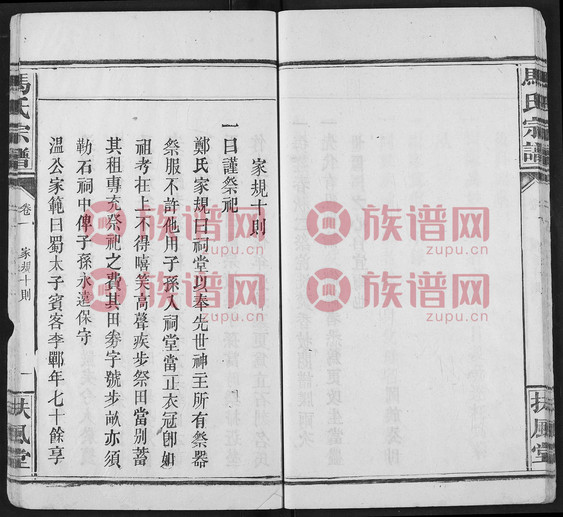 馬氏宗譜
扶風堂
家規十則
一曰謹祭祀
鄭氏家規曰祠堂以奉先世神主所有祭器
祭服不許他用子孫入祠堂當正衣冠卽如
祖考在上不得嘻笑高聲疾步祭田當別蓄
其租專充祭祀之費其田券字號步畝亦須
勒石祠中俾子孫永遠保守
溫公家範曰蜀太子賓客李鄲年七十餘享
馬氏宗譜
卷一
家規十則
一
扶風堂
族谱网
zupu.cn
族谱网
zupu.cn
族谱网
zupu.cn
族谱网
zupu.cn